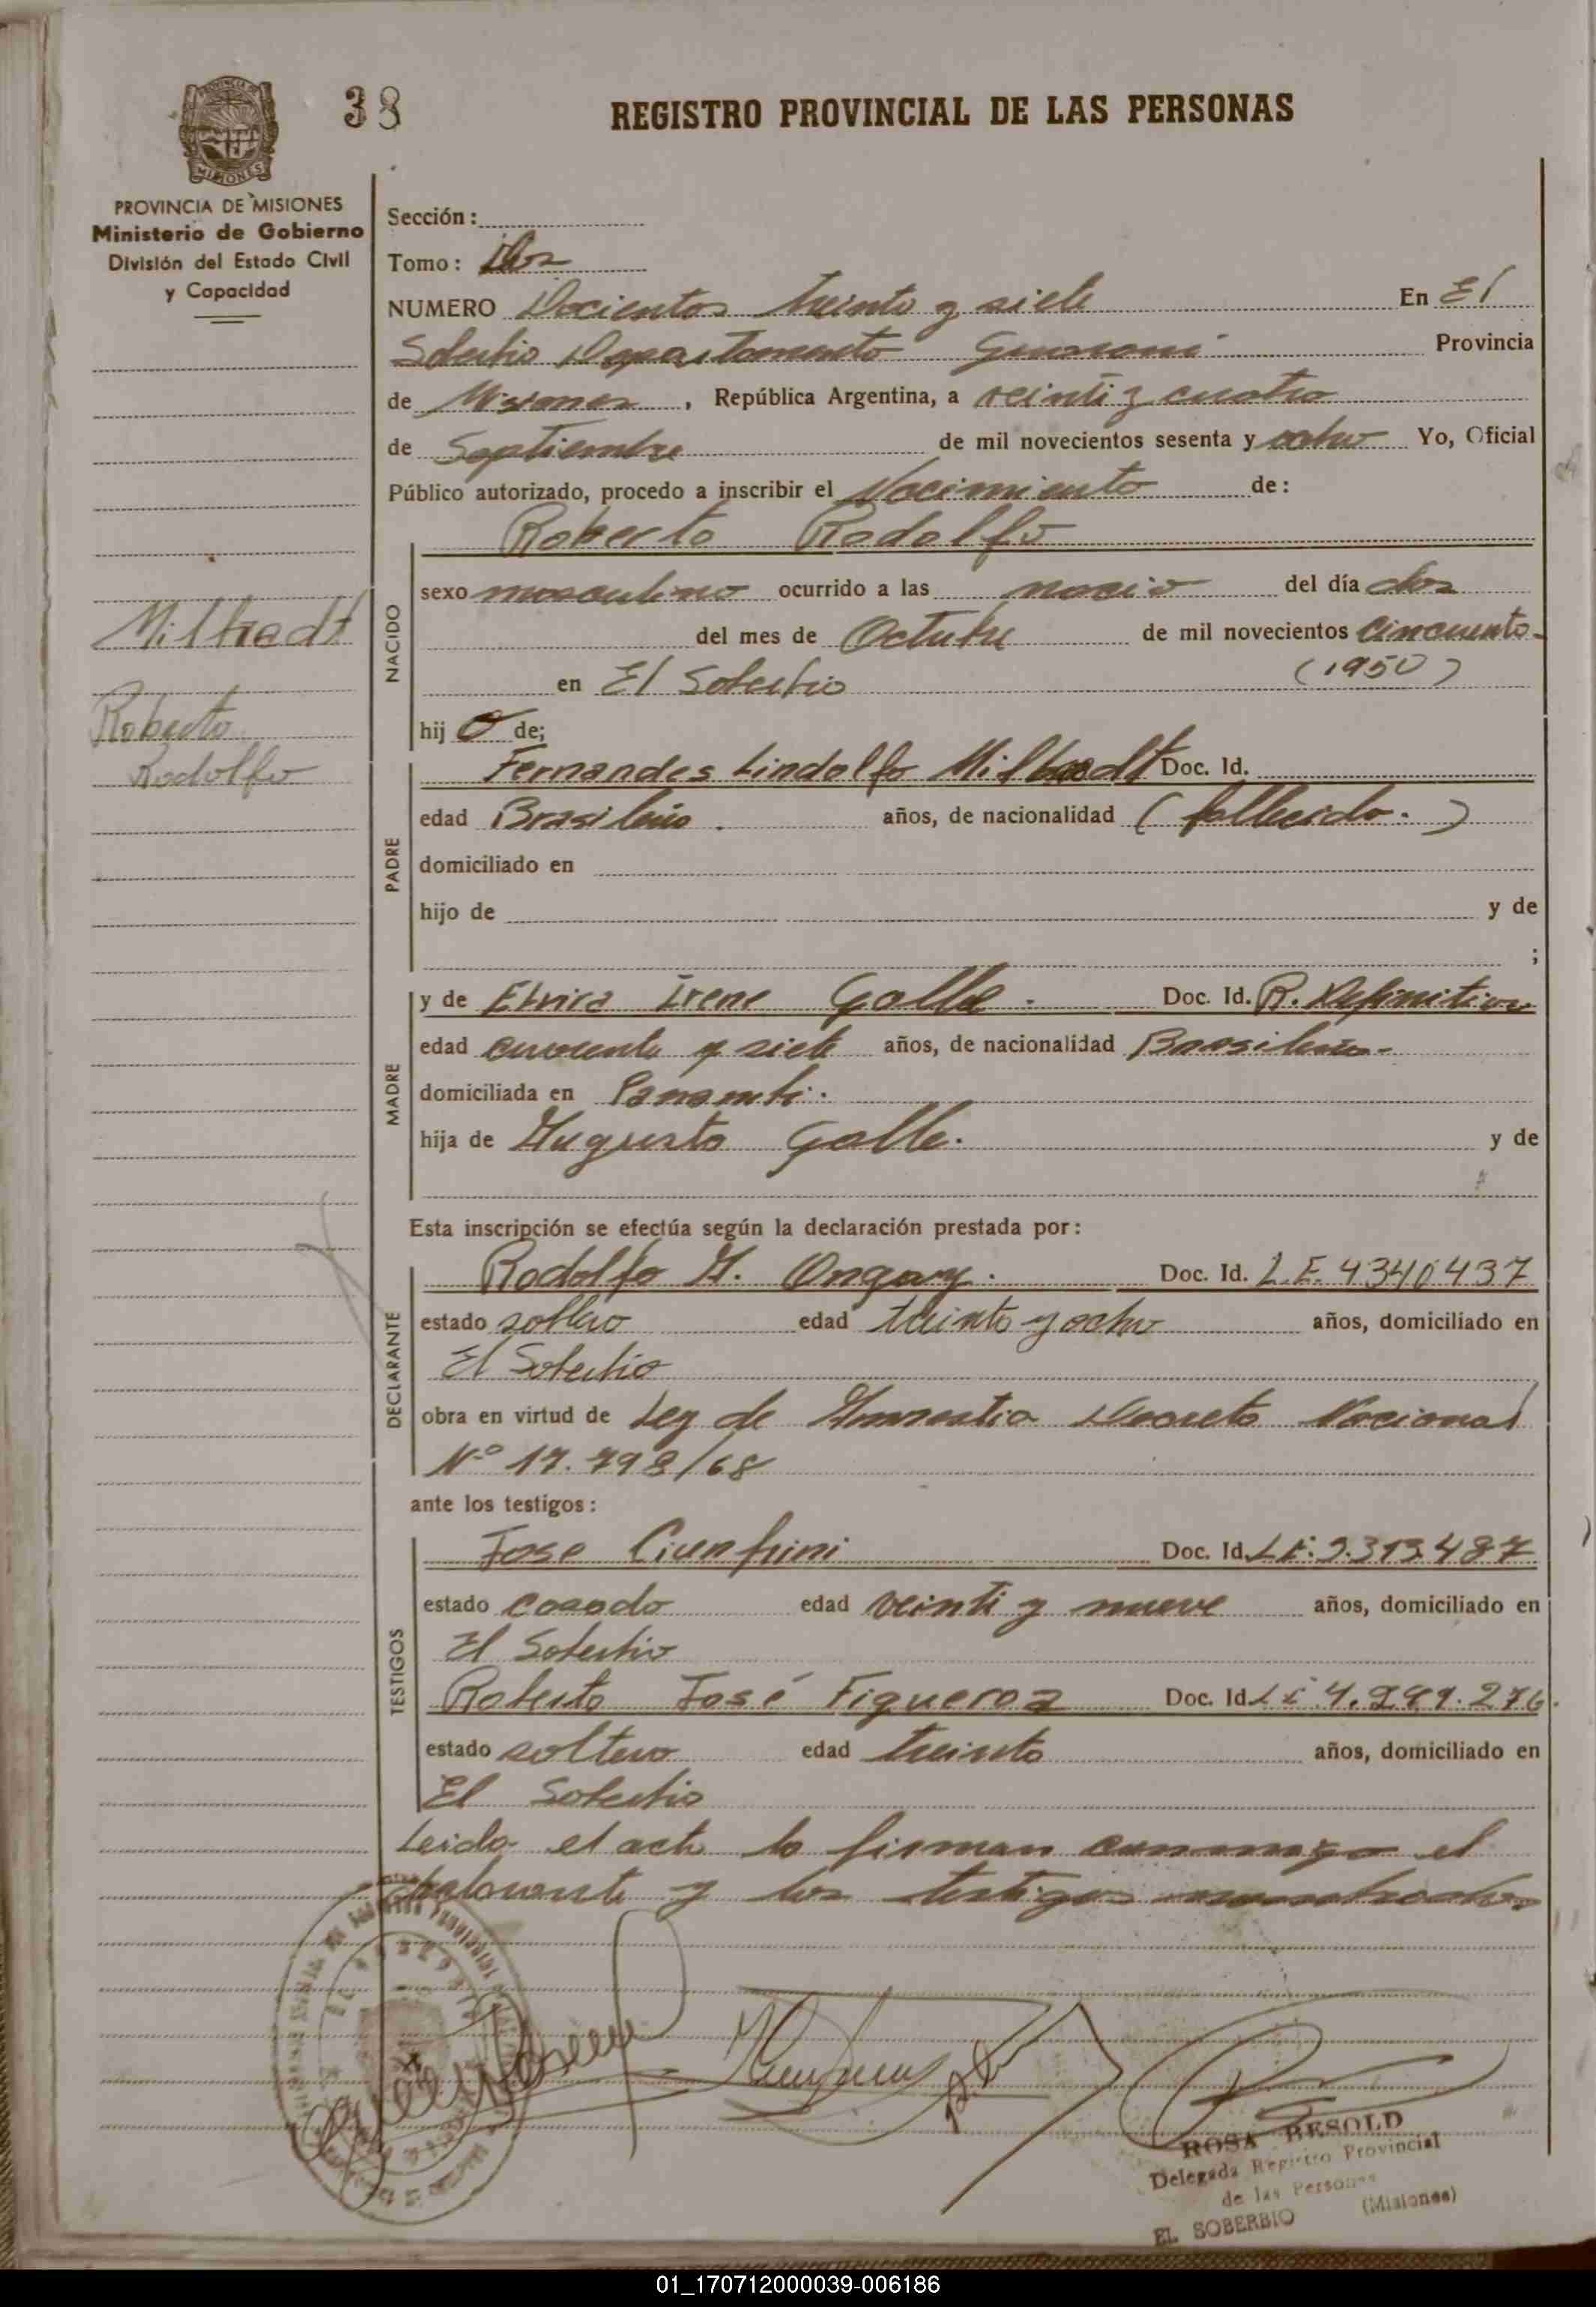 38
REGISTRO PROVINCIAL DE LAS PERSONAS
MISIONES
PROVINCIA DE MISIONES
Ministerio de Gobierno
División del Estado Civil
y Capacidad
Sección:
Tomo: Dos
NUMERO Docientos treinta y siete En El
Soberbio Departamento Guarani Provincia
de Misiones, República Argentina, a veinti y cuatro
de Septiembre de mil novecientos sesenta y ocho Yo, Oficial
Público autorizado, procedo a inscribir el Nacimiento de:
Roberto Rodolfo
NACIDO
sexo masculino ocurrido a las nacio del día dos
del mes de Octubre de mil novecientos cincuenta
en El Soberbio (1950)
hij o de;
Milbradt
Roberto
Rodolfo
PADRE
Fernandes Lindolfo Milbradt Doc. Id.
edad Brasileño. años, de nacionalidad (fallecido.)
domiciliado en
hijo de y de
;
MADRE
y de Elvira Irene Galle. Doc. Id. R. Definitiva
edad cuarenta y siete años, de nacionalidad Brasileña
domiciliada en Panambi.
hija de Augusto Galle. y de
Esta inscripción se efectúa según la declaración prestada por:
DECLARANTE
Rodolfo A. Ongay. Doc. Id. L.E. 4340437
estado soltero edad treinta y ocho años, domiciliado en
El Soberbio
obra en virtud de Ley de Amnestia Decreto Nacional
Nº 17.798/68
ante los testigos:
TESTIGOS
Jose Cianfrini Doc. Id.
estado casado edad veinti y nueve años, domiciliado en
El Soberbio
Roberto José Figueroa Doc. Id.
estado soltero edad treinta años, domiciliado en
El Soberbio
Leida el acta la firman conmigo el
declarante y los testigos nombrados
ROSA BESOLD
Delegada Registro Provincial
de las Personas
EL SOBERBIO (Misiones)
01_170712000039-006186